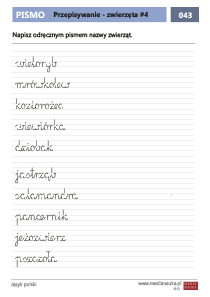 PISMO Przepisywanie - zwierzęta #4 043
Napisz odręcznym pismem nazwy zwierząt.
wieloryb
mrówkolew
koziorożec
wiewiórka
dziobak
jastrząb
salamandra
pancernik
jeżozwierz
pszczoła
Język polski www.medianauka.pl